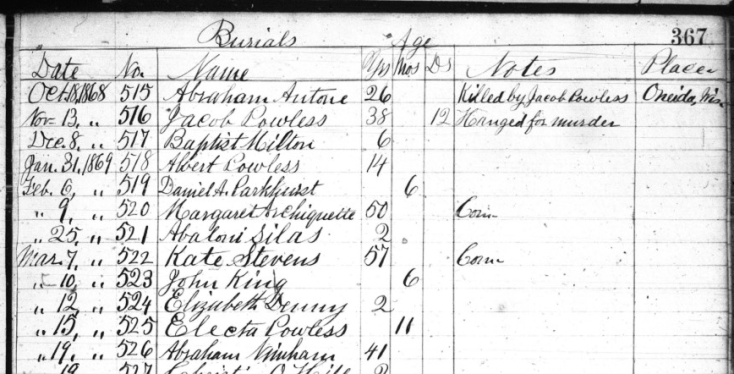 Burials Age 367
Date No. Name Yrs Mos Ds Notes Place
Oct. 18, 1868 515 Abraham Antone 26 Killed by Jacob Powless Oneida, Wis.
Nov. 13, " 516 Jacob Powless 38 12 Hanged for murder
Dec. 8, " 517 Baptist Hilton 6
Jan. 31, 1869 518 Albert Powless 14
Feb. 6, " 519 Daniel A. Parkhurst 6
" 9, " 520 Margaret Archiquette 50 Com
" 25, " 521 Abaloni Silas 2
Mar. 7, " 522 Kate Stevens 57 Com
" 10, " 523 John King 6
" 12, " 524 Elizabeth Denny 2
" 15, " 525 Electa Powless 11
" 19, " 526 Abraham 41
527 2